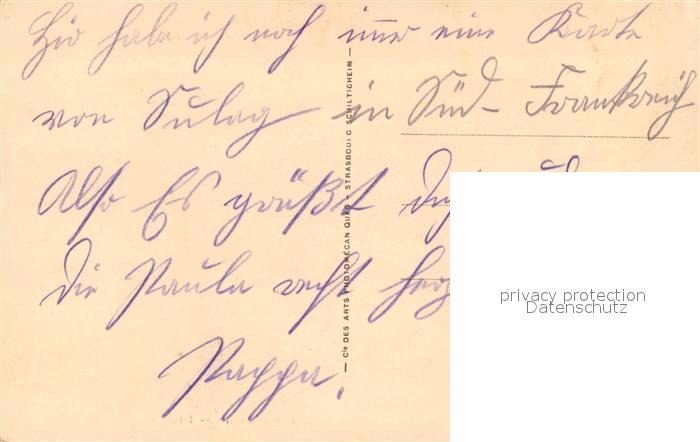 Hier habe ich noch immer eine Karte
von Sulac in Süd-Frankreich
Also Es grüßt Dich
Die Paula recht herz
Pappa.
— Cie DES ARTS PHOTOMÉCANIQUES - STRASBOURG-SCHILTIGHEIM —
privacy protection
Datenschutz